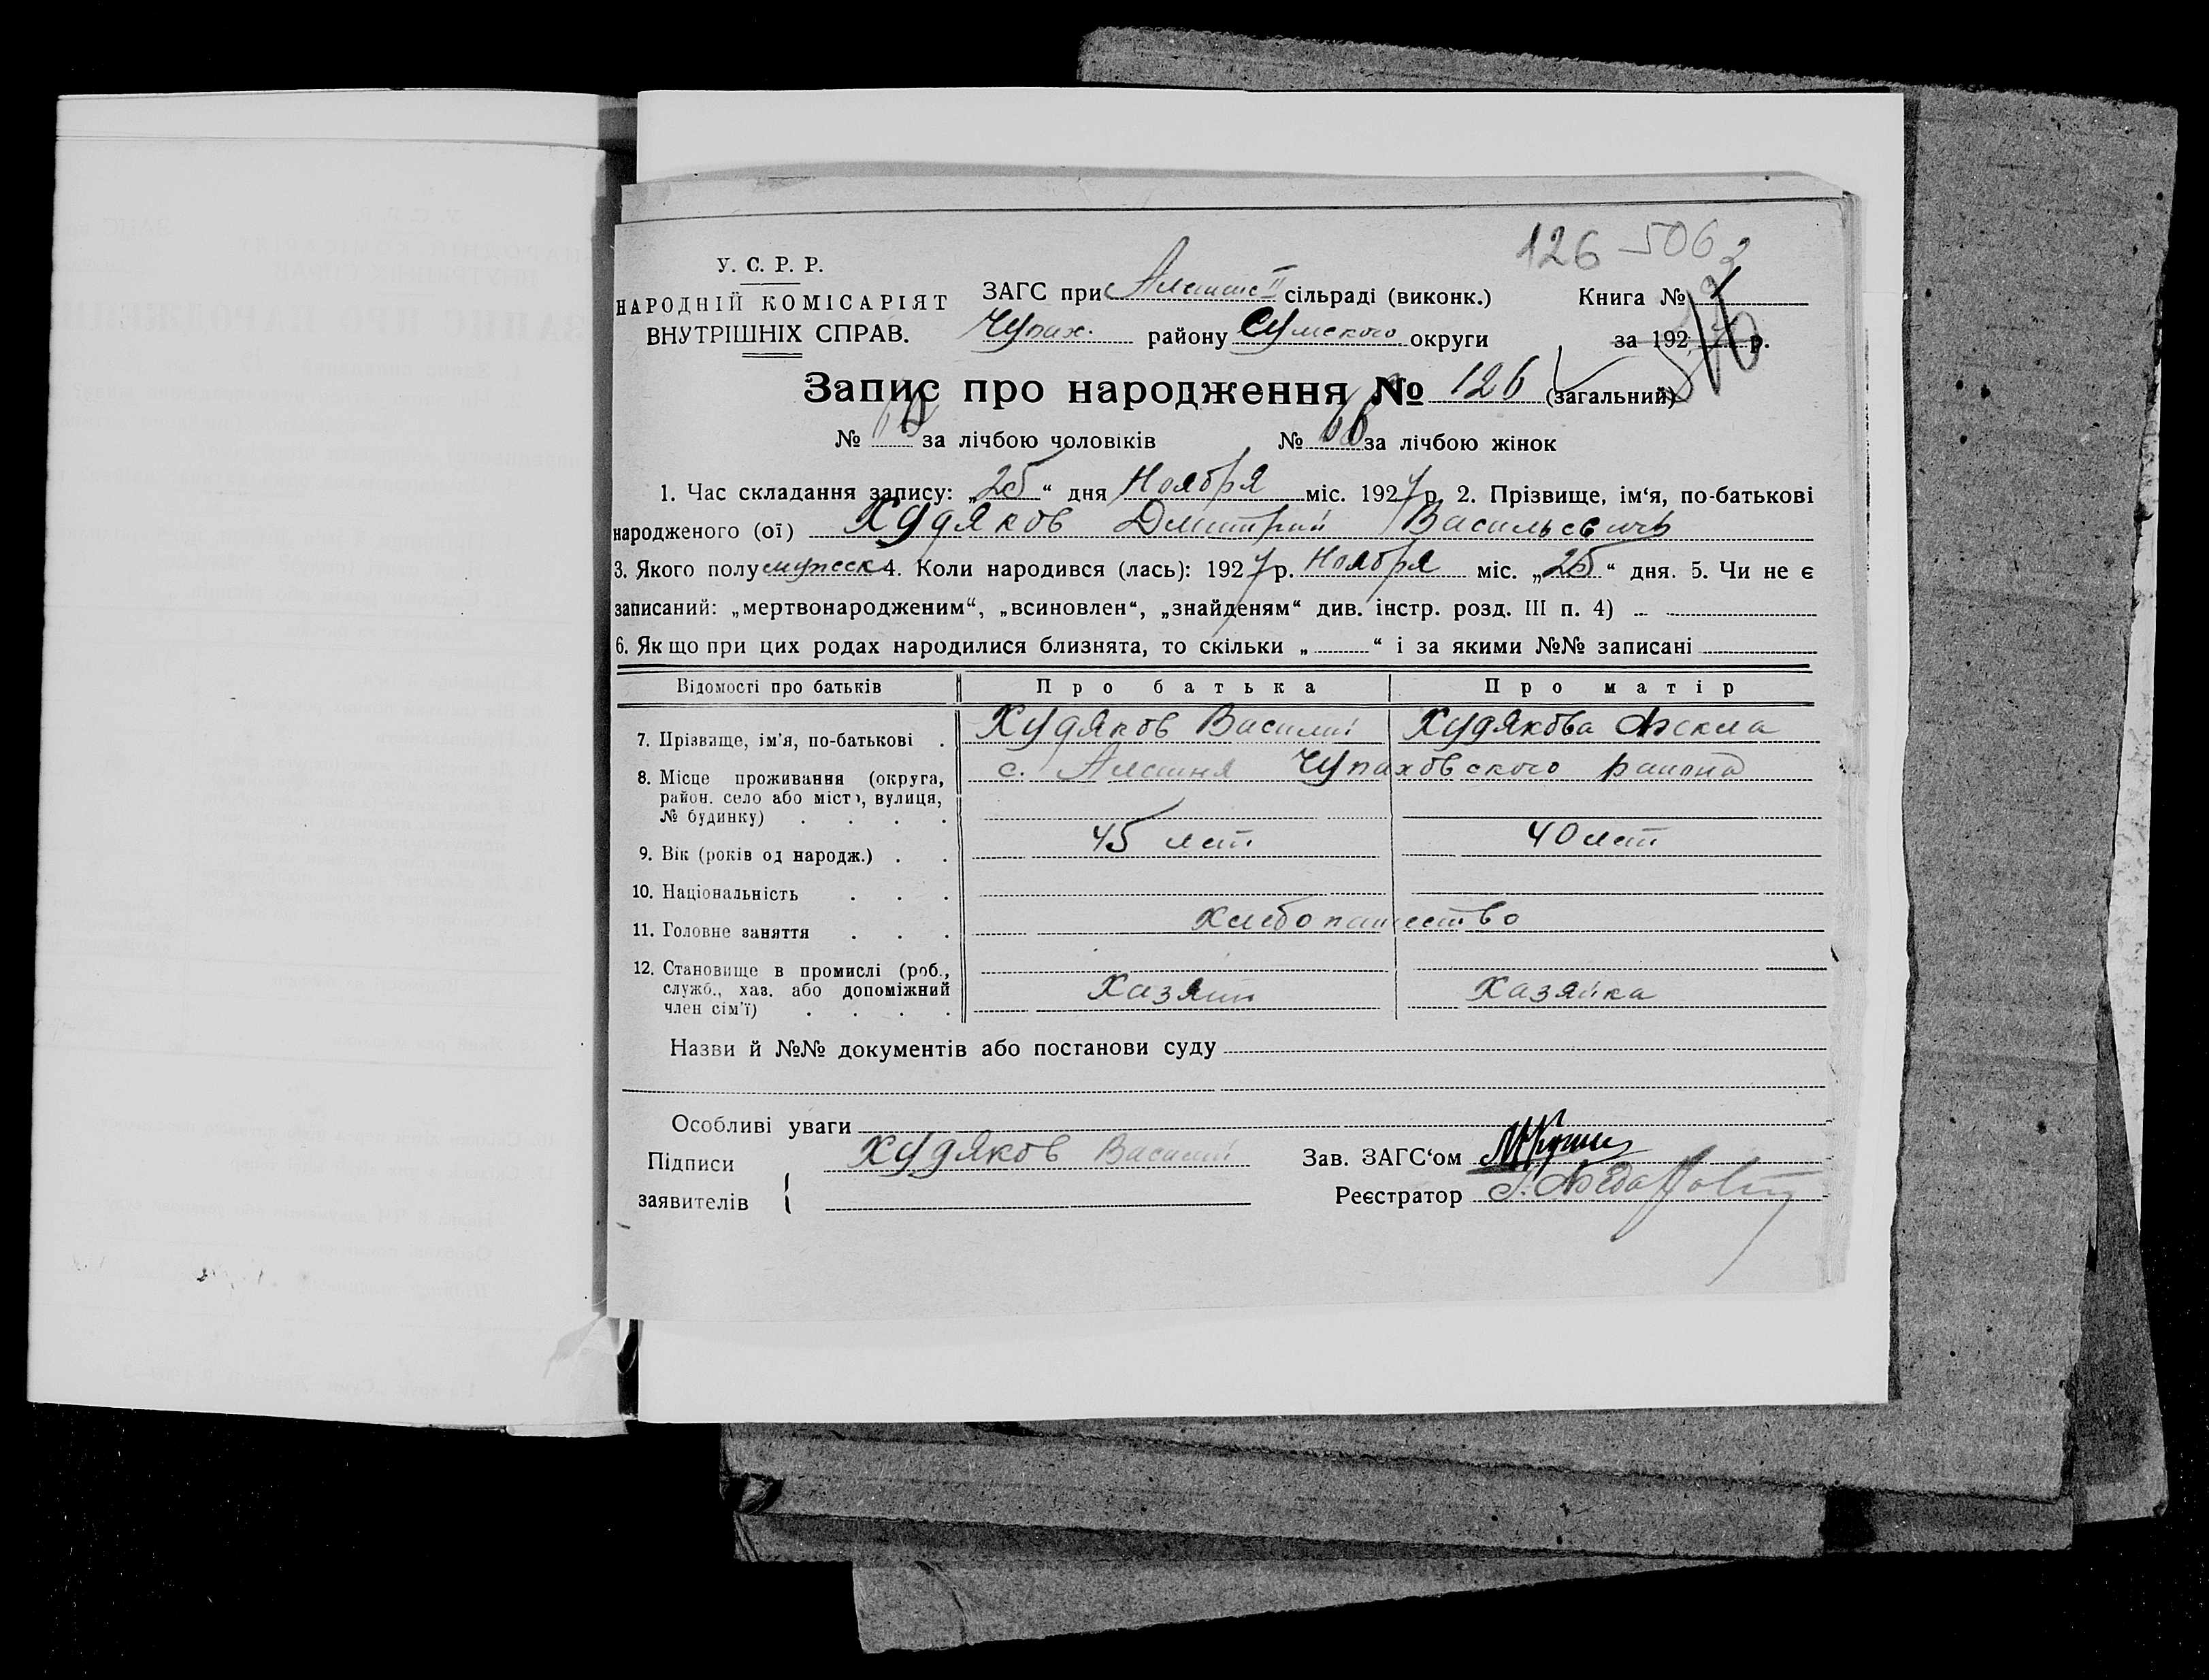 126 506
У. С. Р. Р.
НАРОДНІЙ КОМІСАРІЯТ
ВНУТРІШНІХ СПРАВ.
ЗАГС при сільраді (виконк.)
Чупах. району Сумского округи
Книга №
за 192 р.
Запис про народження № 126 (загальний)
№ за лічбою чоловіків № 66 за лічбою жінок
1. Час складання запису: „25“ дня Ноября міс. 1927 р. 2. Прізвище, ім‘я, по-батькові
народженого (ої) Худяков Дмитрий Васильевичь
3. Якого полу мужеск 4. Коли народився (лась): 1927 р. Ноября міс. „25“ дня. 5. Чи не є
записаний: „мертвонародженим“, „всиновлен“, „знайденям“ див. інстр. розд. III п. 4)
6. Якщо при цих родах народилися близнята, то скільки „ “ і за якими №№ записані
Відомості про батьків Про батька Про матір
7. Прізвище, ім’я, по-батькові . Худяков Василий Худякова Фекла
8. Місце проживання (округа, с. Алешня Чупаховского района
район. село або місто, вулиця,
№ будинку) . . . .
9. Вік (років од народж.) . . 45 лет 40 лет
10. Національність . . .
11. Головне заняття . . . Хлебопашество
12. Становище в промислі (роб.,
служб., хаз. або допоміжний Хазяин Хазяйка
член сім’ї) . . . .
Назви й №№ документів або постанови суду
Особливі уваги
Підписи Худяков Василий Зав. ЗАГС‘ом
заявителів Реєстратор